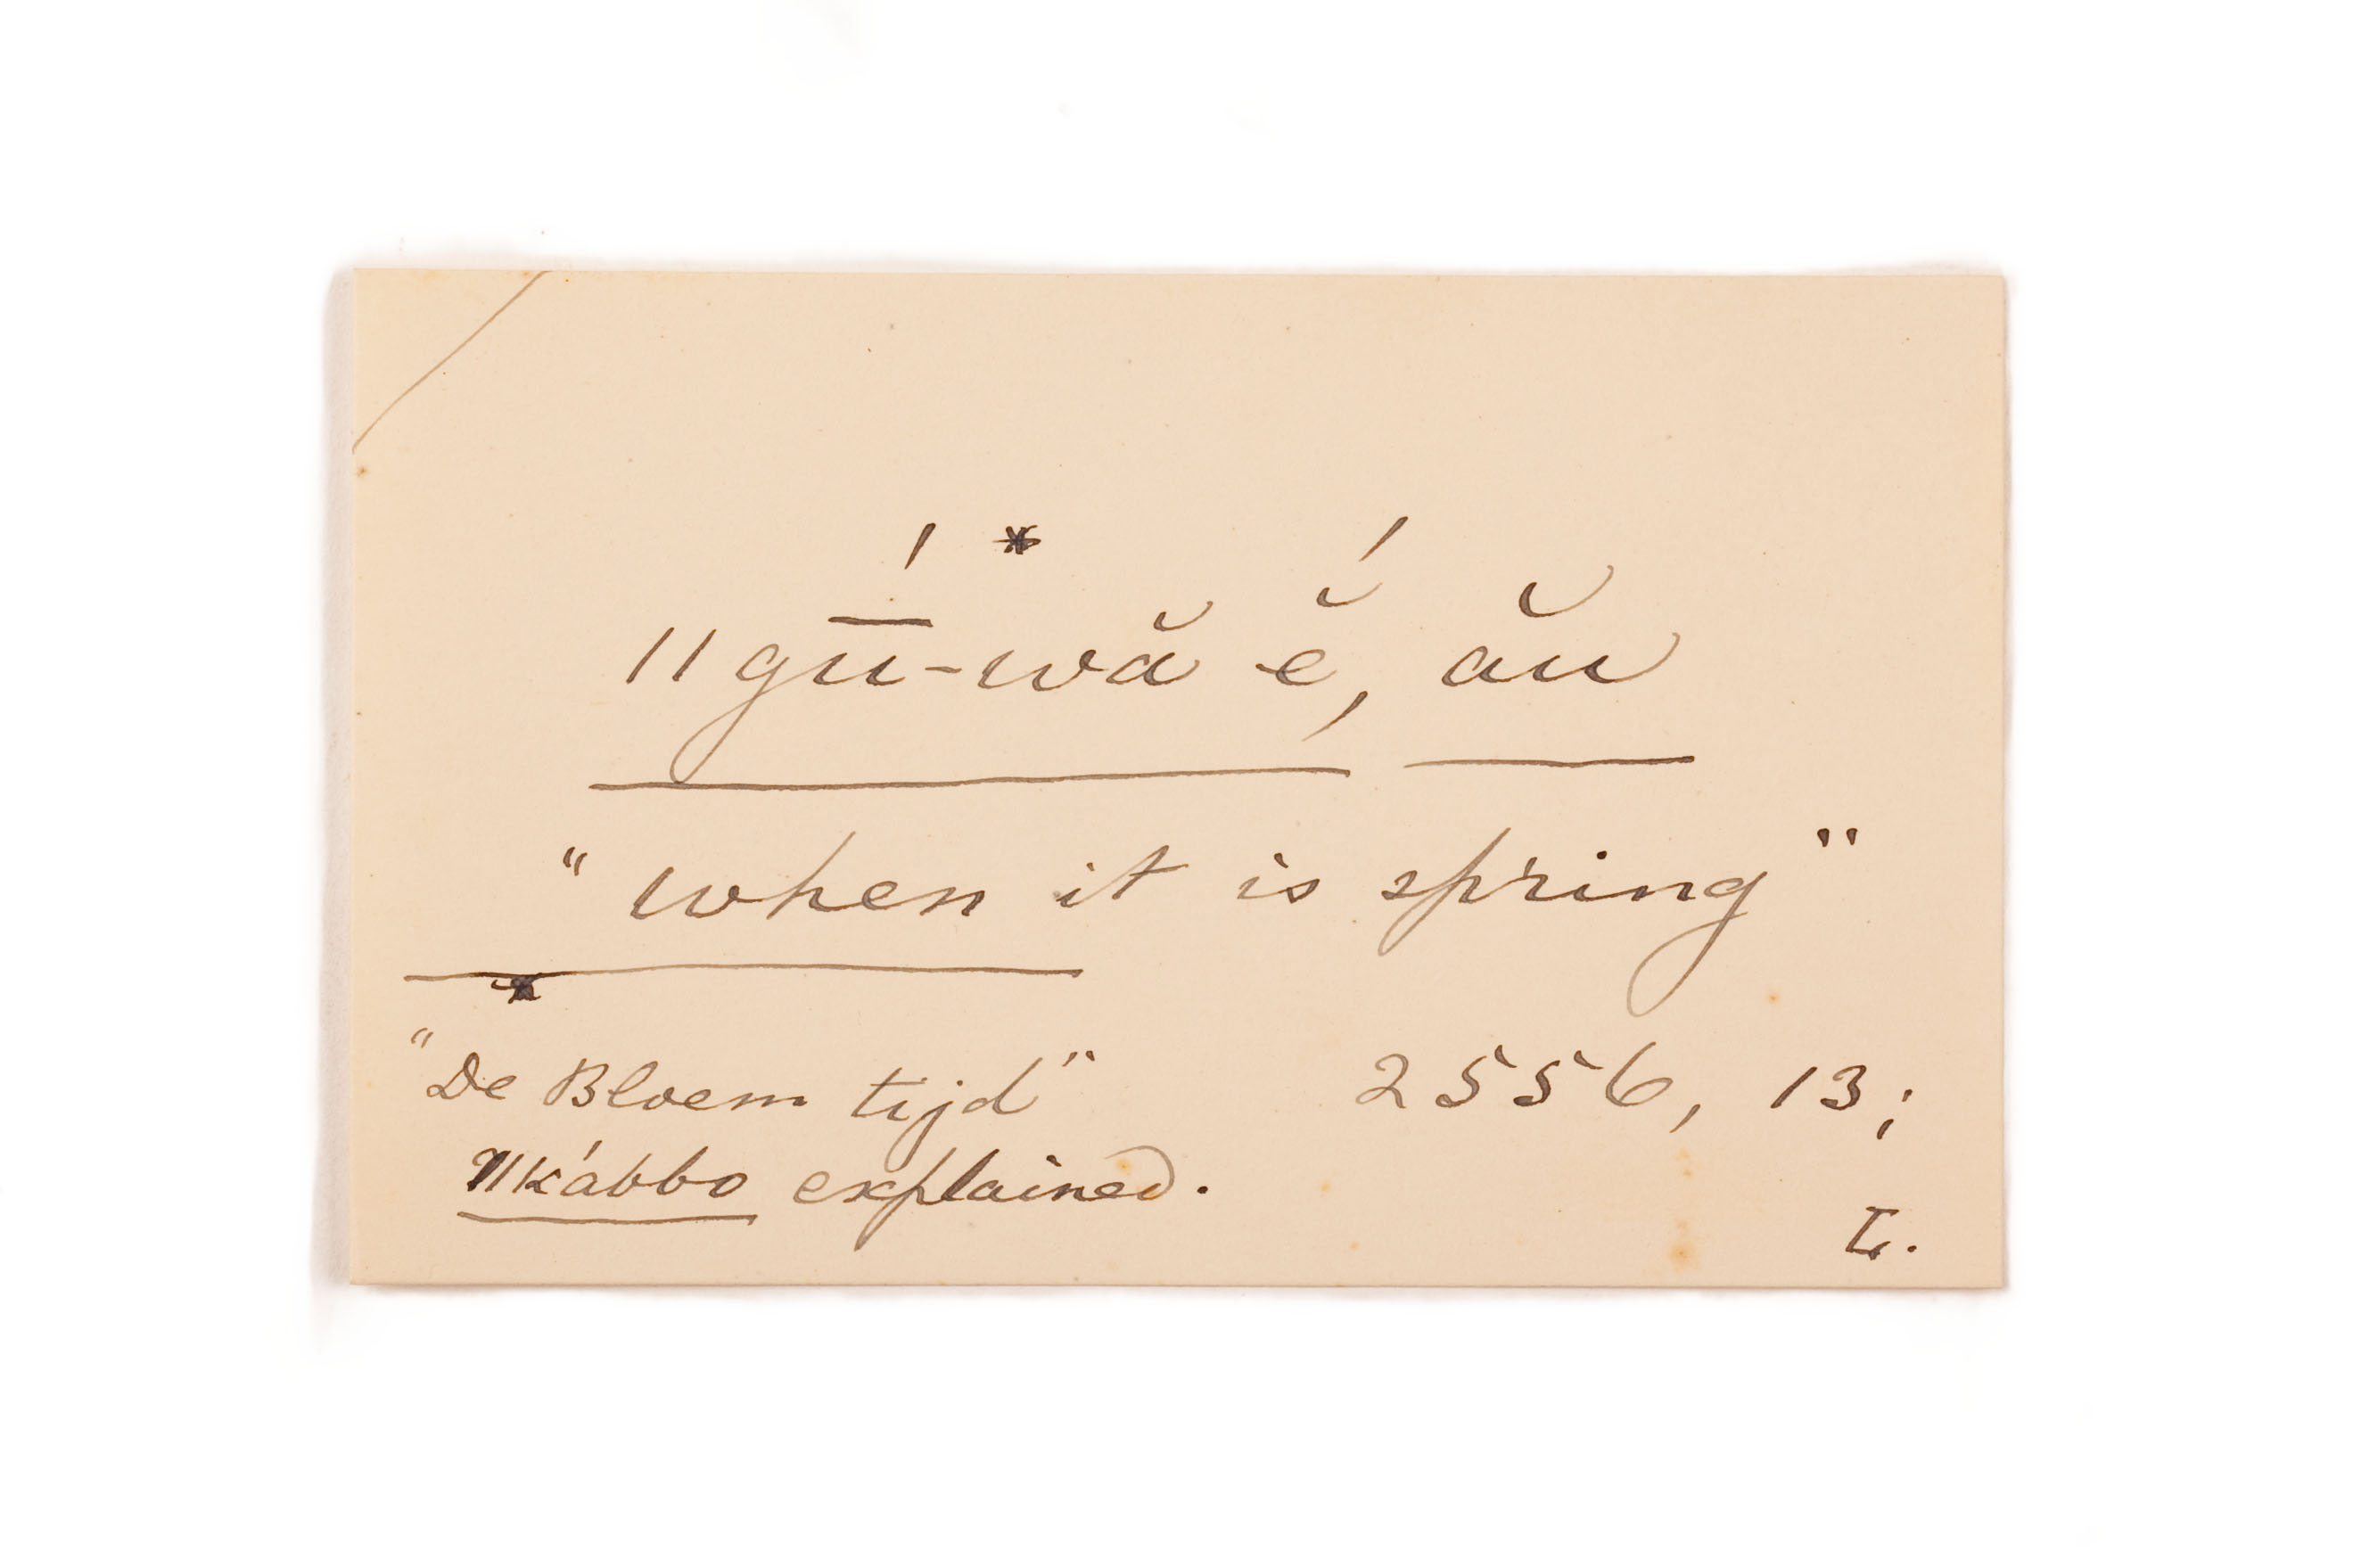 ǁgū́-wă* ĕ́, ău
"when it is spring"
*
"De Bloem tijd" 2556, 13;
ǁkábbo explained.
L.